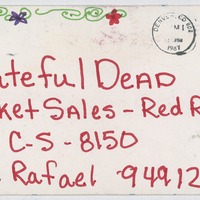 DENVER, CO 802
PM
1987
ateful DEAD
ket SALES - Red R
C-S- 8150
Rafael - 9491